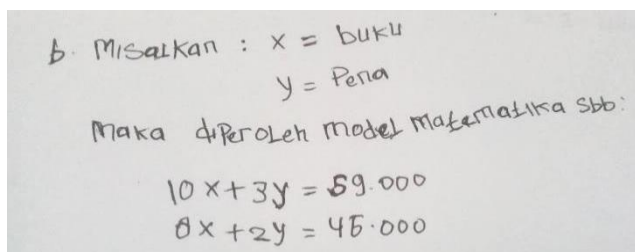 b. Misalkan : x = buku
y = Pena
Maka diperoleh model matematika sbb:
10x + 3y = 59.000
8x + 2y = 45.000